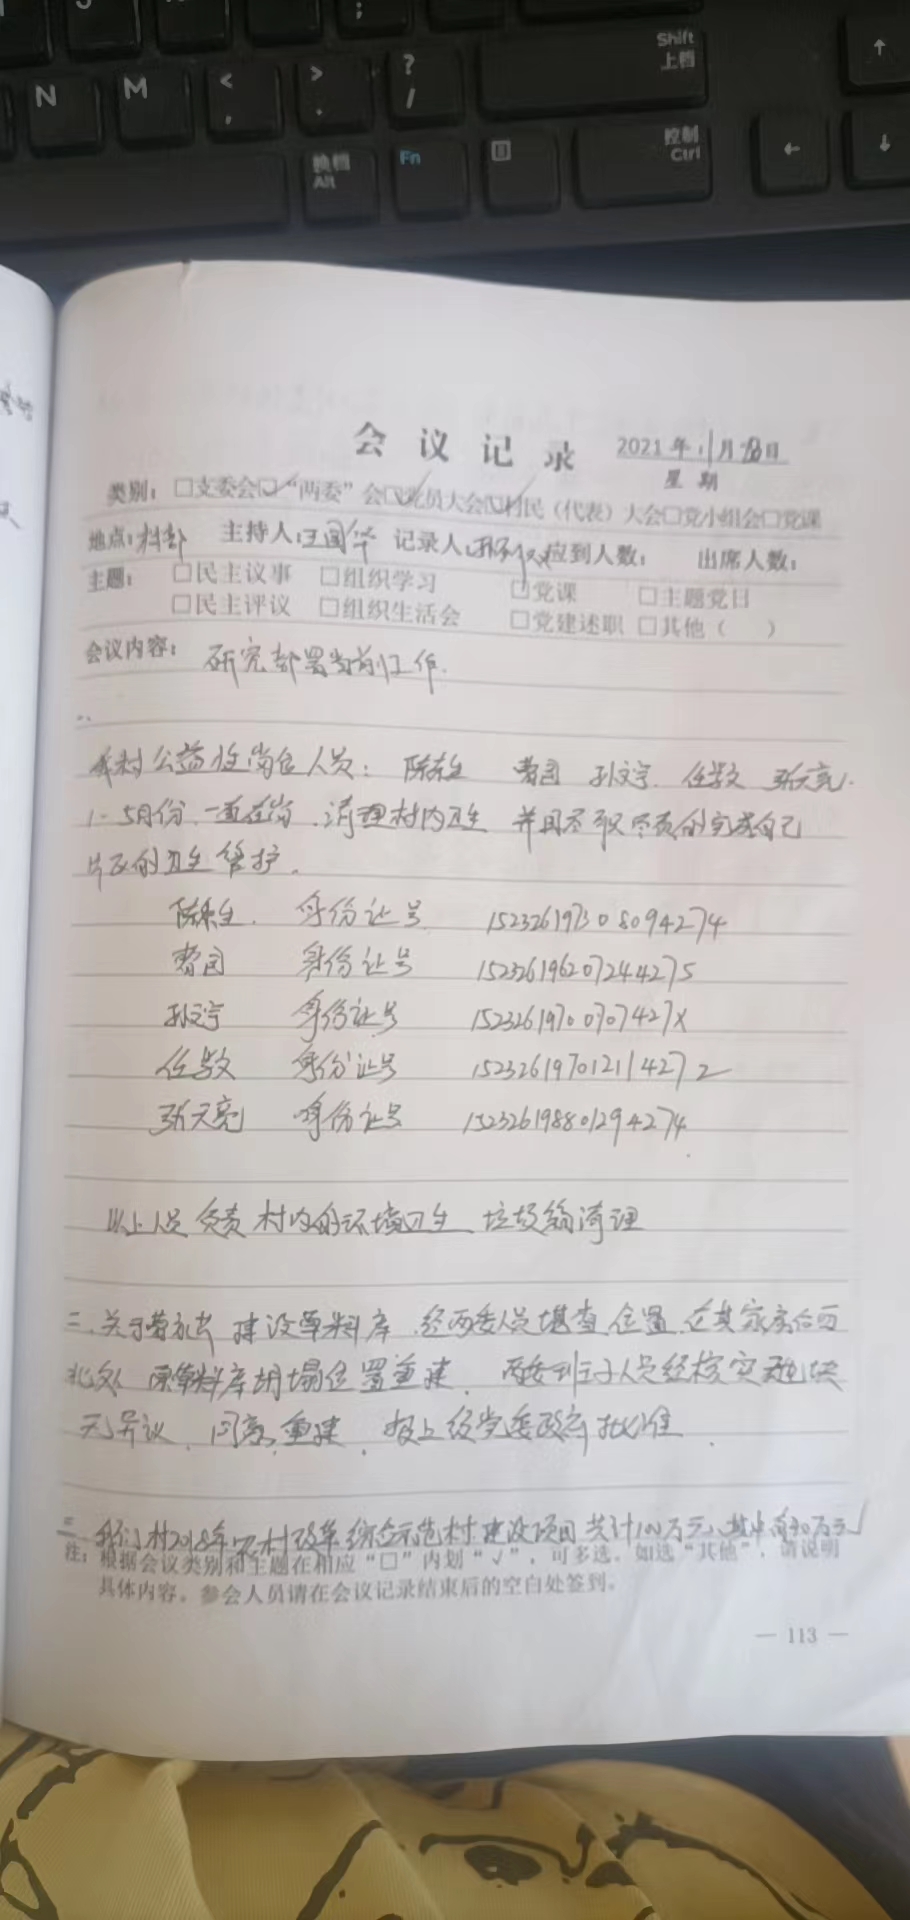 N
M
<
,
>
.
?
/
Shift
上档
↑
换档
Alt
Fn
控制
Ctrl
←
↓
会议记录 2021年11月日
星期
类别：□支委会□“两委”会□党员大会□村民（代表）大会□党小组会□党课
地点：村部 主持人：王国华 记录人： 应到人数： 出席人数：
主题：□民主议事 □组织学习 □党课 □主题党日
□民主评议 □组织生活会 □党建述职 □其他（ ）
会议内容：研究部署当前工作.
我村公益性岗位人员： 曹园 孙文宇. 任敬文 张天亮.
1-5月份.一直在岗.清理村内卫生 并且尽职尽责的完成自己
片区的卫生管护.
身份证号 152326197308094274
曹园 身份证号 152326196207244275
孙文宇 身份证号 15232619700707427X
身份证号 152326197012114272
张天亮 身份证号 152326198801294274
以上人员负责村内的环境卫生 垃圾箱清理
二.关于 建设草料库.经两委人员堪查位置.在其家房后西
北处.原草料库胡塌位置重建.两委班子人员经核实地块
无异议.同意重建.报上级党委政府批准.
三.我们村2018年 村改革综合示范村建设项目共计100万元.其中有30万元
注：根据会议类别和主题在相应“□”内划“√”，可多选。如选“其他”，请说明
具体内容。参会人员请在会议记录结束后的空白处签到。
— 113 —